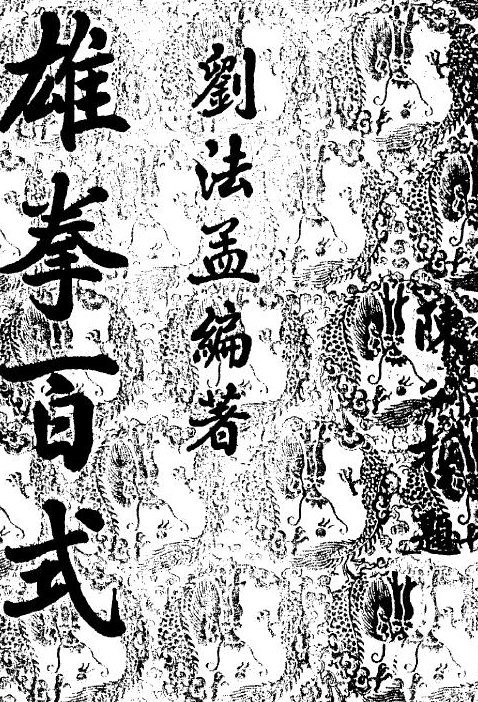 陳題
劉法孟編著
雄拳百式